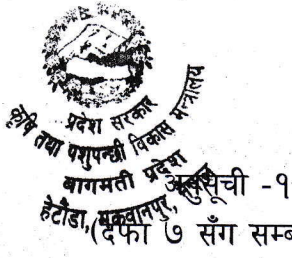 प्रदेश सरकार
कृषि तथा पशुपन्छी विकास मन्त्रालय
बागमती प्रदेश
हेटौंडा, मकवानपुर,
अनुसूची -१
(दफा ७ सँग सम्ब